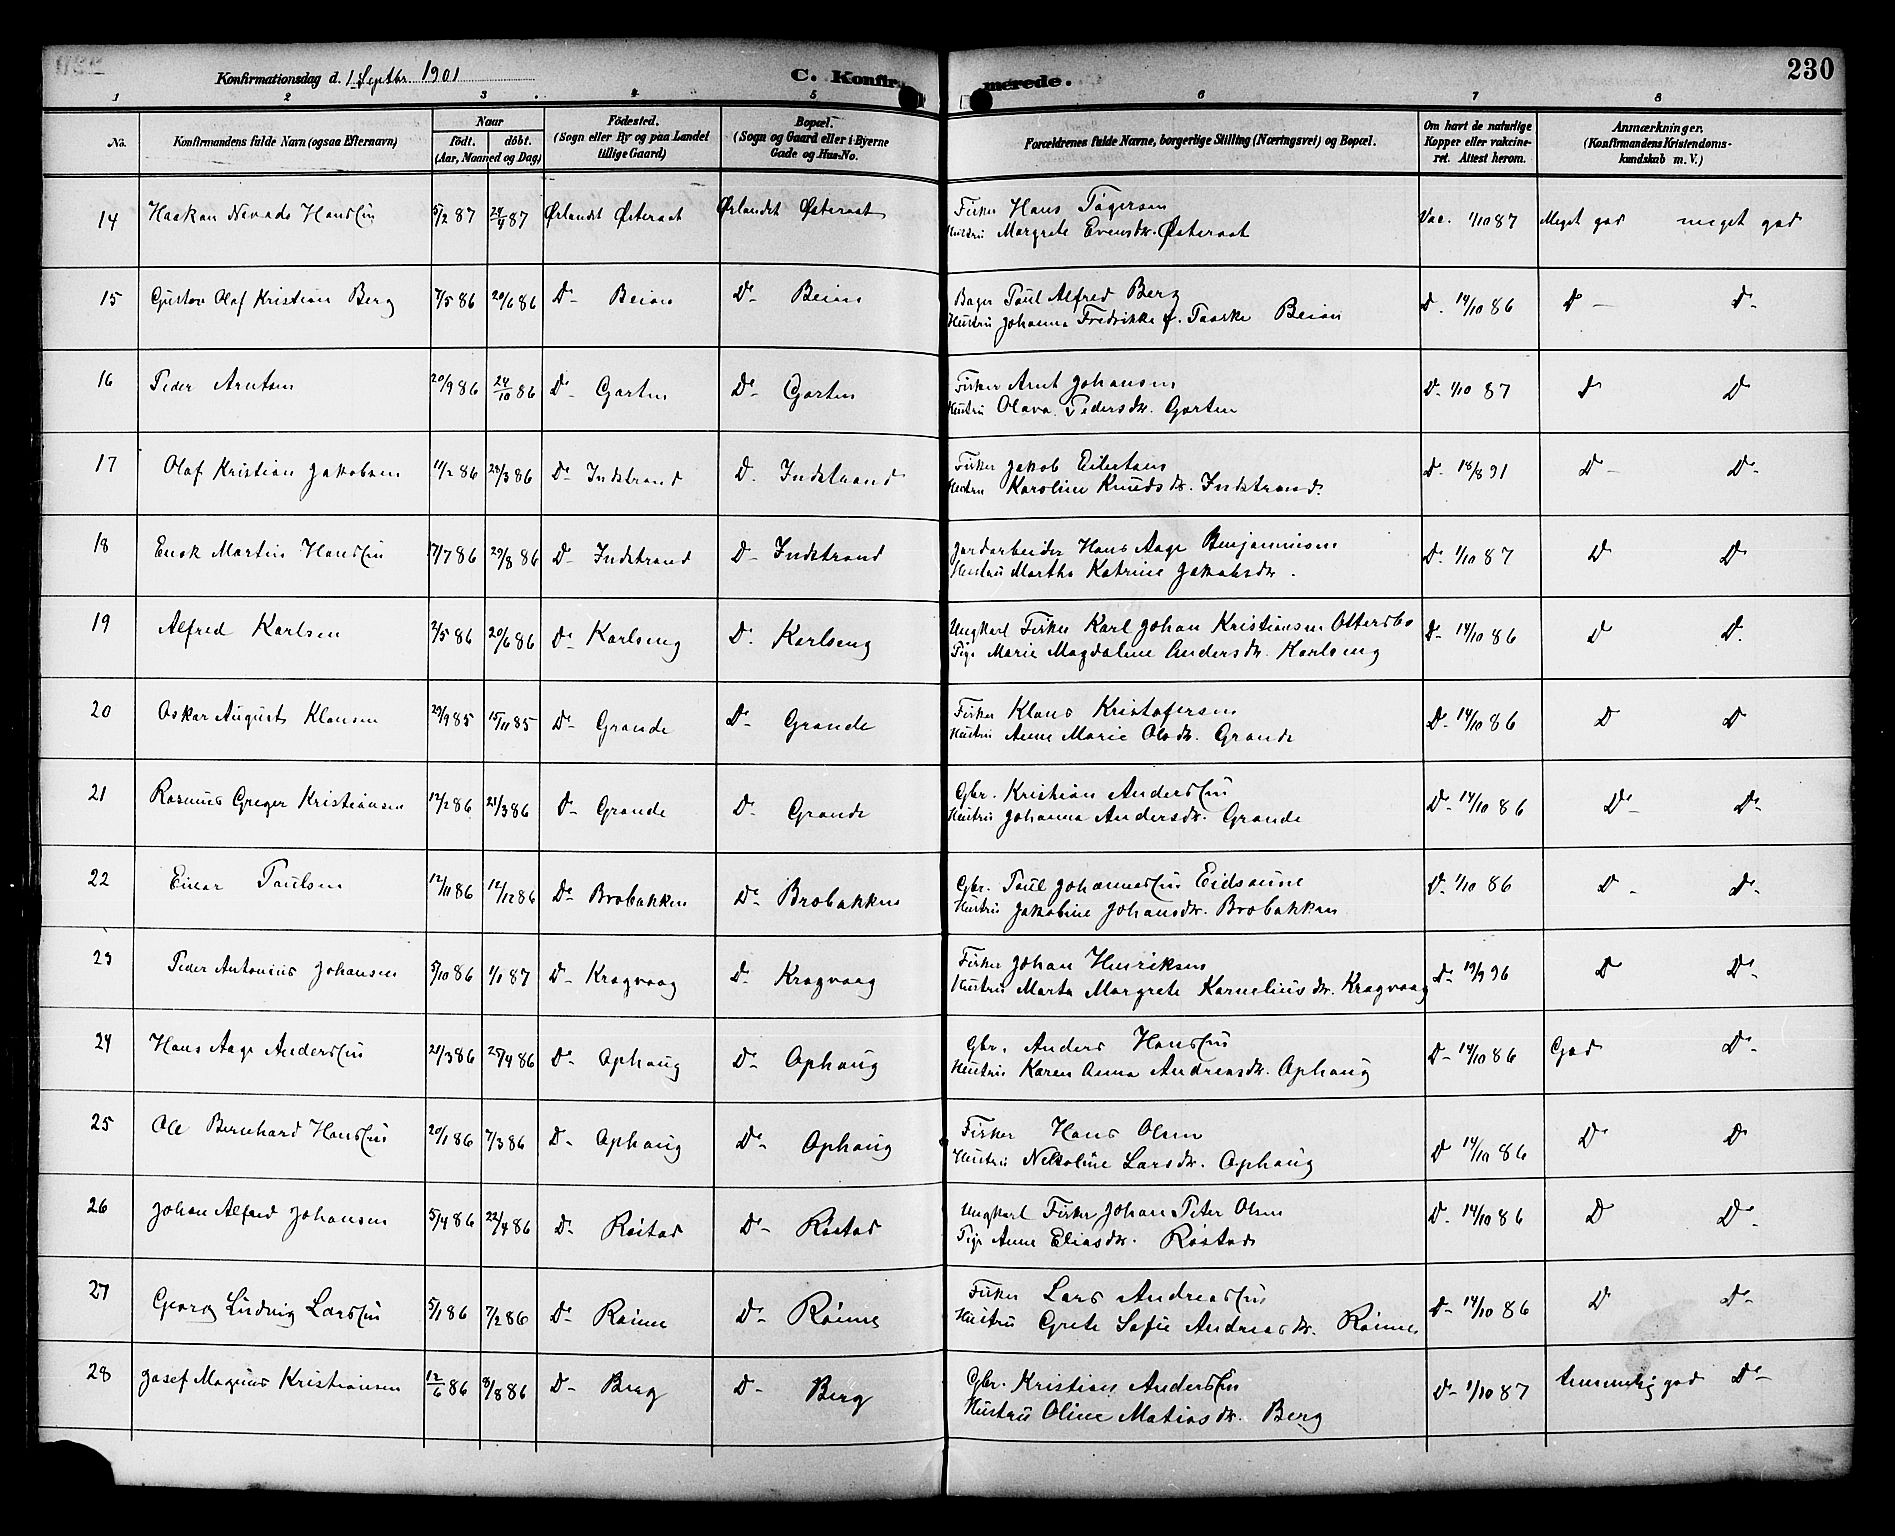 230
Konfirmationsdag d. 1 Septbr. 1901
C. Konfirmerede.
1 2 3 4 5 6 7 8
No. | Konfirmandens fulde Navn (ogsaa Efternavn) | Naar født. døbt. (Aar, Maaned og Dag) | Fødested. (Sogn eller By og paa Landet tillige Gaard) | Bopæl. (Sogn og Gaard eller i Byerne Gade og Hus-No. | Forældrenes fulde Navne, borgerlige Stilling (Næringsvei) og Bopæl. | Om havt de naturlige Kopper eller vakcineret. Attest herom. | Anmærkninger. (Konfirmandens Kristendomskundskab m. V.)
14 Haakan Nevads Hanssen 5/2 87 24/4 87 Ørlandet Østeraat Ørlandet Østeraat Fisker Hans Tøgersen Vac. 1/10 87 Meget god meget god
Hustru Margrete Evensdr. Østeraat
15 Gustav Olaf Kristian Berg 7/5 86 20/6 86 D- Beian D- Beian Bager Paul Alfred Berg D. 14/10 86 D- D-
Hustru Johanna Fredrikke f. Taaske Beian
16 Peder Arntsen 20/9 86 24/10 86 D- Garten D- Garten Fisker Arnt Johansen D- 1/10 87 D D
Hustru Olava Pedersdr. Garten
17 Olaf Kristian Jakobsen 11/2 86 28/3 86 D- Indstrand D. Indstrand Fisker Jakob Eilertsen D- 18/8 91 D- D-
Hustru Karoline Knudsdr. Indstrand.
18 Enok Martin Hanssen 17/7 86 29/8 86 D- Indstrand D- Indstrand Jordarbeider Hans Aage Benjaminsen D- 1/10 87 D D
Hustru Martha Katrine Jakobsdr.
19 Alfred Karlsen 2/5 86 20/6 86 D- Karlseng D- Karlseng Ungkarl Fisker Karl Johan Kristiansen Ottersbo D- 14/10 86 D D.
Pige Marie Magdalene Andersdr. Karlseng
20 Oskar August Klausen 29/9 85 15/11 85 D- Grande D- Grande Fisker Klaus Kristofersen D- 14/10 86 D D
Hustru Anne Marie Olsdr. Grande
21 Rasmus Greger Kristiansen 12/2 86 21/3 86 D- Grande D- Grande Gbr. Kristian Anderssen D- 14/10 86 D- D-
Hustru Johanna Andersdr. Grande
22 Einar Paulsen 12/11 86 12/12 86 D- Brobakken D- Brobakken Gbr. Paul Johannessen Eidsaune D- 1/10 86 D- D-
Hustru Jakobine Johansdr. Brobakken
23 Peder Antonius Johansen 5/10 86 1/1 87 D- Kragvaag D- Kragvaag Fisker Johan Henriksen D- 19/9 96 D D-
Hustru Marta Margrete Korneliusdr. Kragvaag
24 Hans Aage Anderssen 21/3 86 25/4 86 D- Ophaug D- Ophaug Gbr. Anders Hanssen D- 14/10 86 God D-
Hustru Karen Anna Andreasdr. Ophaug
25 Ole Bernhard Hanssen 20/1 86 7/3 86 D- Ophaug D- Ophaug Fisker Hans Olsen D 14/10 86 D- D
Hustru Nikoline Larsdr. Ophaug
26 Johan Alfred Johansen 5/4 86 22/4 86 D- Røstad D- Røstad Ungkarl Fisker Johan Peter Olsen D- 14/10 86 D D-
Pige Anne Eliasdr. Røstad
27 Georg Ludvig Larssen 5/1 86 7/2 86 D- Røinne D- Røinne Fisker Lars Andreassen D- 14/10 86 D D-
Hustru Grete Sofie Andreasdr. Røinne
28 Josef Magnus Kristiansen 12/6 86 8/8 86 D- Berg D- Berg Gbr. Kristian Anderssen D- 1/10 87 temmelig god D-
Hustru Oline Matiasdr. Berg